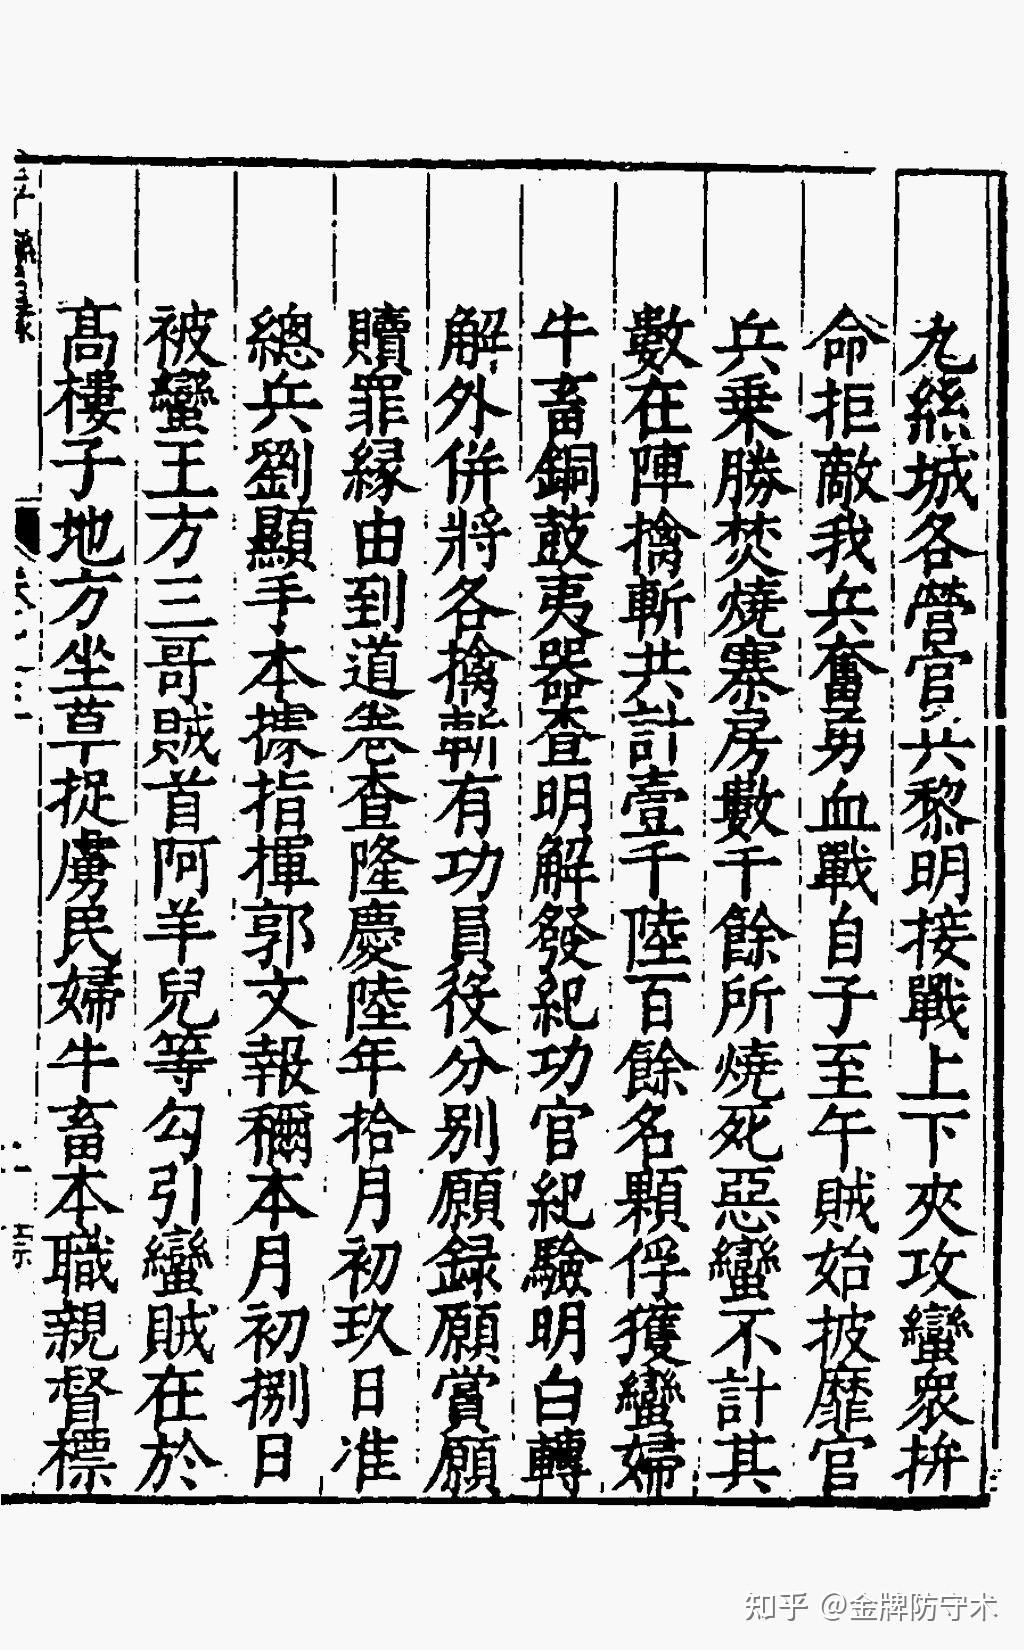 九絲城各營官兵黎明接戰上下夾攻蠻衆拚
命拒敵我兵奮勇血戰自子至午賊始披靡官
兵乗勝焚燒寨房數千餘所燒死惡蠻不計其
數在陣擒斬共計壹千陸百餘名顆俘獲蠻婦
牛畜銅鼓夷器查明解發紀功官紀驗明白轉
解外併將各擒斬有功員役分别願録願賞願
贖罪縁由到道卷查隆慶陸年拾月初玖日准
總兵劉顯手本據指揮郭文報稱本月初捌日
被蠻王方三哥賊首阿羊兒等勾引蠻賊在於
髙樓子地方坐草捉虜民婦牛畜本職親督標
知乎 @金牌防守术